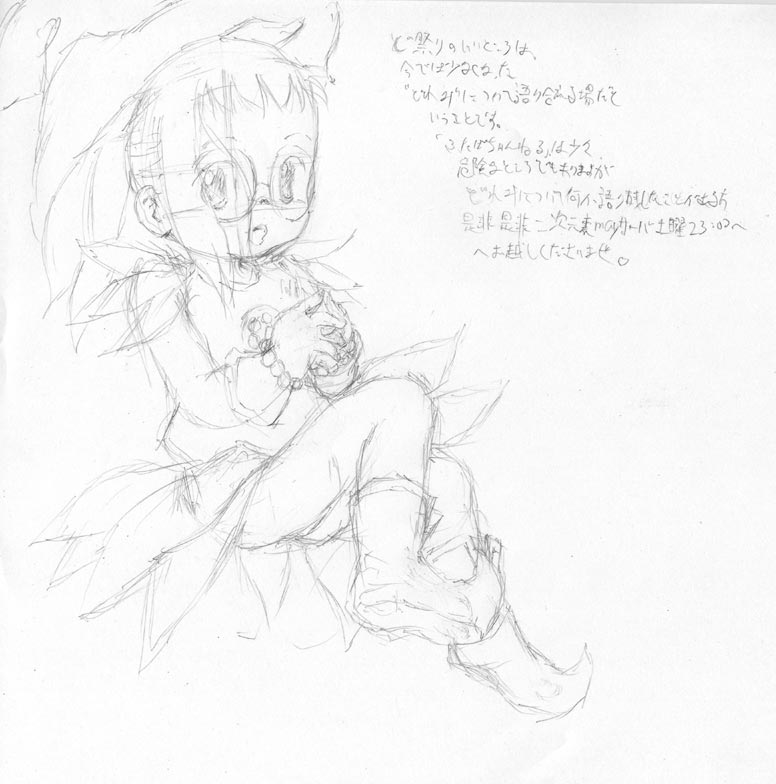 ど祭りのいいところは、
今では少なくなった
"どれみ"について語り合える場だと
いうことです。
「ふたばちゃんねる」は少々
危険なところでもありますが
どれみについて何か語り残したことがある方
是非是非二次元裏mayサーバ土曜23:00へ
へお越しくださいませ。